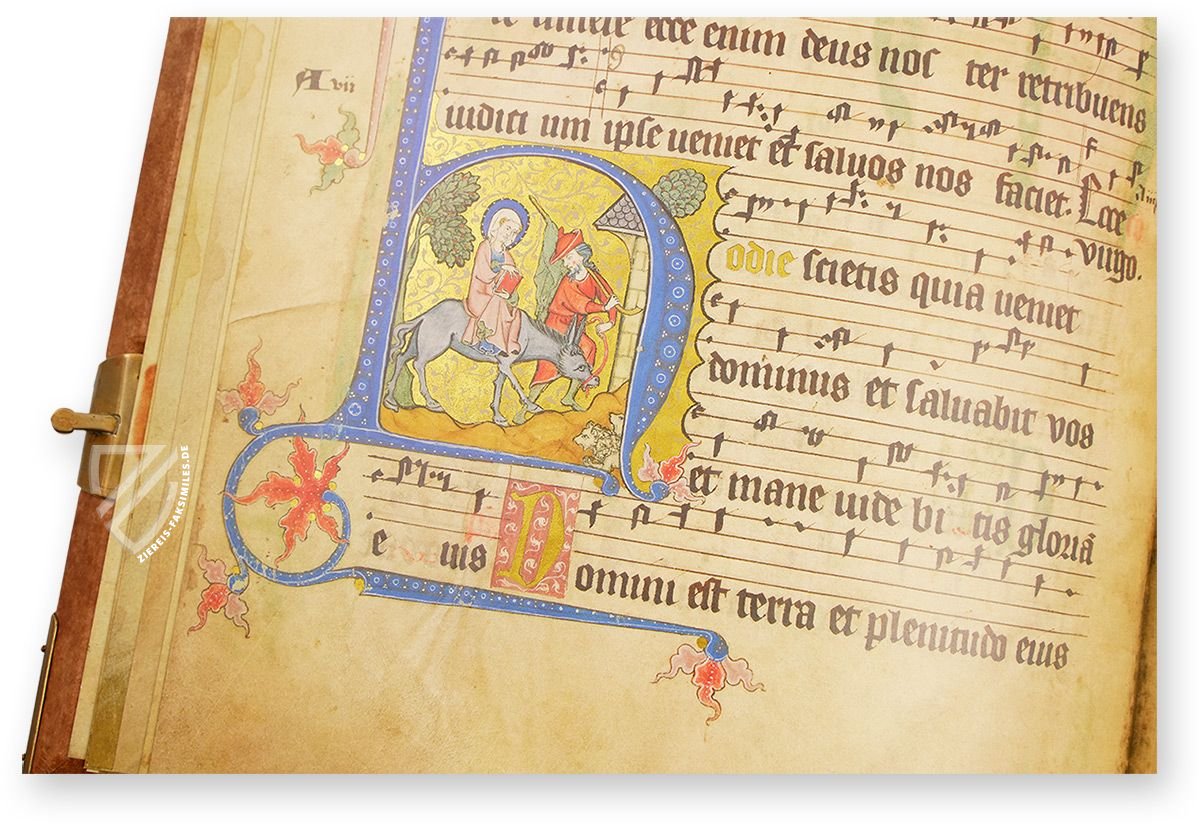 ecce enim deus nos ter retribuens
A vii
iudici um ipse ueniet et saluos nos faciet. Ecce
uirgo.
Hodie scietis quia ueniet
dominus et saluabit vos
et mane uide bi tis gloriā
e ius Domini est terra et plenitudo eius
ZIEREIS-FAKSIMILES.DE